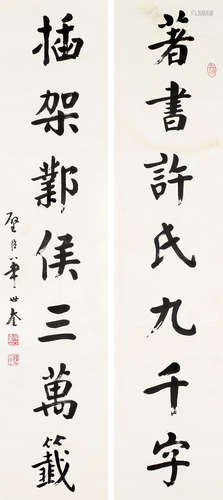 著書許氏九千字
插架鄴侯三萬籤
華世奎